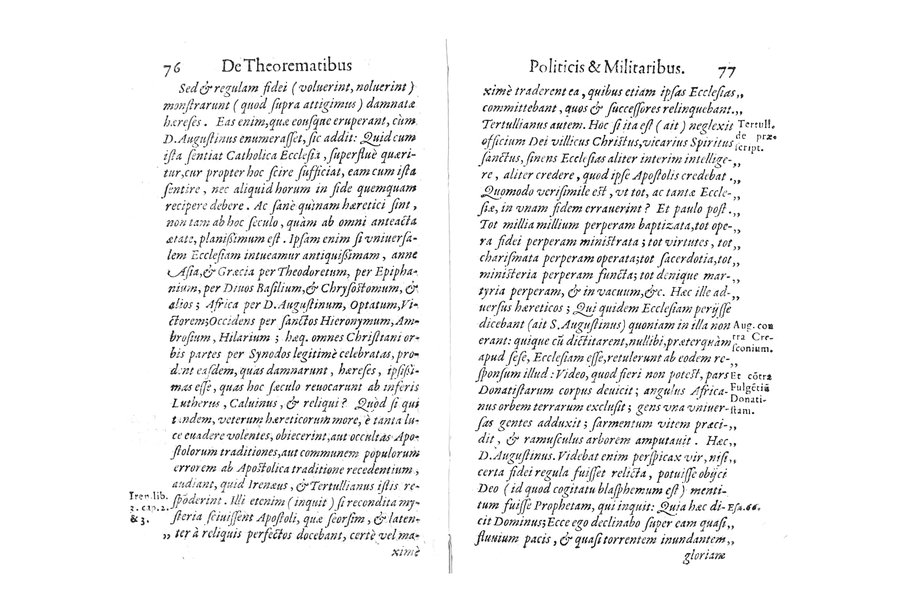 76 De Theorematibus
Sed & regulam fidei ( voluerint, noluerint )
monſtrarunt ( quod ſupra attigimus ) damnatæ
hæreſes. Eas enim, quæ eouſque eruperant, cùm
D. Auguſtinus enumeraſſet, ſic addit: Quid cum
iſta ſentiat Catholica Eccleſia, ſuperfluè quæri-
tur, cur propter hoc ſcire ſufficiat, eam cum iſta
ſentire, nec aliquid horum in fide quemquam
recipere debere. Ac ſanè quinam hæretici ſint,
non tam ab hoc ſeculo, quàm ab omni anteacta
ætate, planißimum eſt. Ipſam enim ſi vniuerſa-
lem Eccleſiam intueamur antiquißimam, anne
Aſia, & Græcia per Theodoretum, per Epipha-
nium, per Diuos Baſilium, & Chryſoſtomum, &
alios; Africa per D. Auguſtinum, Optatum, Vi-
ctorem; Occidens per ſanctos Hieronymum, Am-
broſium, Hilarium; hæq. omnes Chriſtiani or-
bis partes per Synodos legitimè celebratas, pro-
dent eaſdem, quas damnarunt, hæreſes, ipſißi-
mas eſſe, quas hoc ſæculo reuocarunt ab inferis
Lutherus, Caluinus, & reliqui? Quòd ſi qui
tandem, veterum hæreticorum more, è tanta lu-
ce euadere volentes, obiecerint, aut occultas Apo-
ſtolorum traditiones, aut communem populorum
errorem ab Apoſtolica traditione recedentium,
audiant, quid Irenæus, & Tertullianus iſtis re-
ſpōderint. Illi etenim ( inquit ) ſi recondita my-
ſteria ſciuiſſent Apoſtoli, quæ ſeorſim, & laten-
„ ter à reliquis perfectos docebant, certè vel ma-
ximè
Iren. lib.
2. cap. 2.
& 3.
Politicis & Militaribus. 77
ximè traderent ea, quibus etiam ipſas Eccleſias„
committebant, quos & ſucceſſores relinquebant.„
Tertullianus autem. Hoc ſi ita eſt ( ait ) neglexit
officium Dei villicus Chriſtus, vicarius Spiritus
ſanctus, ſinens Eccleſias aliter interim intellige-„
re, aliter credere, quod ipſe Apoſtolis credebat.„
Quomodo veriſimile eſt, vt tot, ac tantæ Eccle-„
ſiæ, in vnam fidem errauerint? Et paulo poſt.„
Tot millia millium perperam baptizata, tot ope-„
ra fidei perperam miniſtrata; tot virtutes, tot„
chariſmata perperam operata; tot ſacerdotia, tot„
miniſteria perperam functa; tot denique mar-„
tyria perperam, & in vacuum, &c. Hæc ille ad-„
uerſus hæreticos; Qui quidem Eccleſiam perijſſe
dicebant (ait S. Auguſtinus) quoniam in illa non
erant: quique cū dictitarent, nullibi, præterquàm
apud ſeſe, Eccleſiam eſſe, retulerunt ab eodem re-„
ſponſum illud: Video, quod fieri non poteſt, pars
Donatiſtarum corpus deuicit; angulus Africa-
nus orbem terrarum excluſit; gens vna vniuer-
ſas gentes adduxit; ſarmentum vitem præci-„
dit, & ramuſculus arborem amputauit. Hæc„
D. Auguſtinus. Videbat enim perſpicax vir, niſi„
certa fidei regula fuiſſet relicta, potuiſſe obijci
Deo ( id quod cogitatu blaſphemum eſt ) menti-
tum fuiſſe Prophetam, qui inquit: Quia hæc di-
cit Dominus; Ecce ego declinabo ſuper eam quaſi„
fluuium pacis, & quaſi torrentem inundantem„
gloriam
Tertull.
de præ-
ſcript.
Aug. con
tra Cre-
ſconium.
Et cōtra
Fulgētiū
Donati-
ſtam.
Eſa. 66.